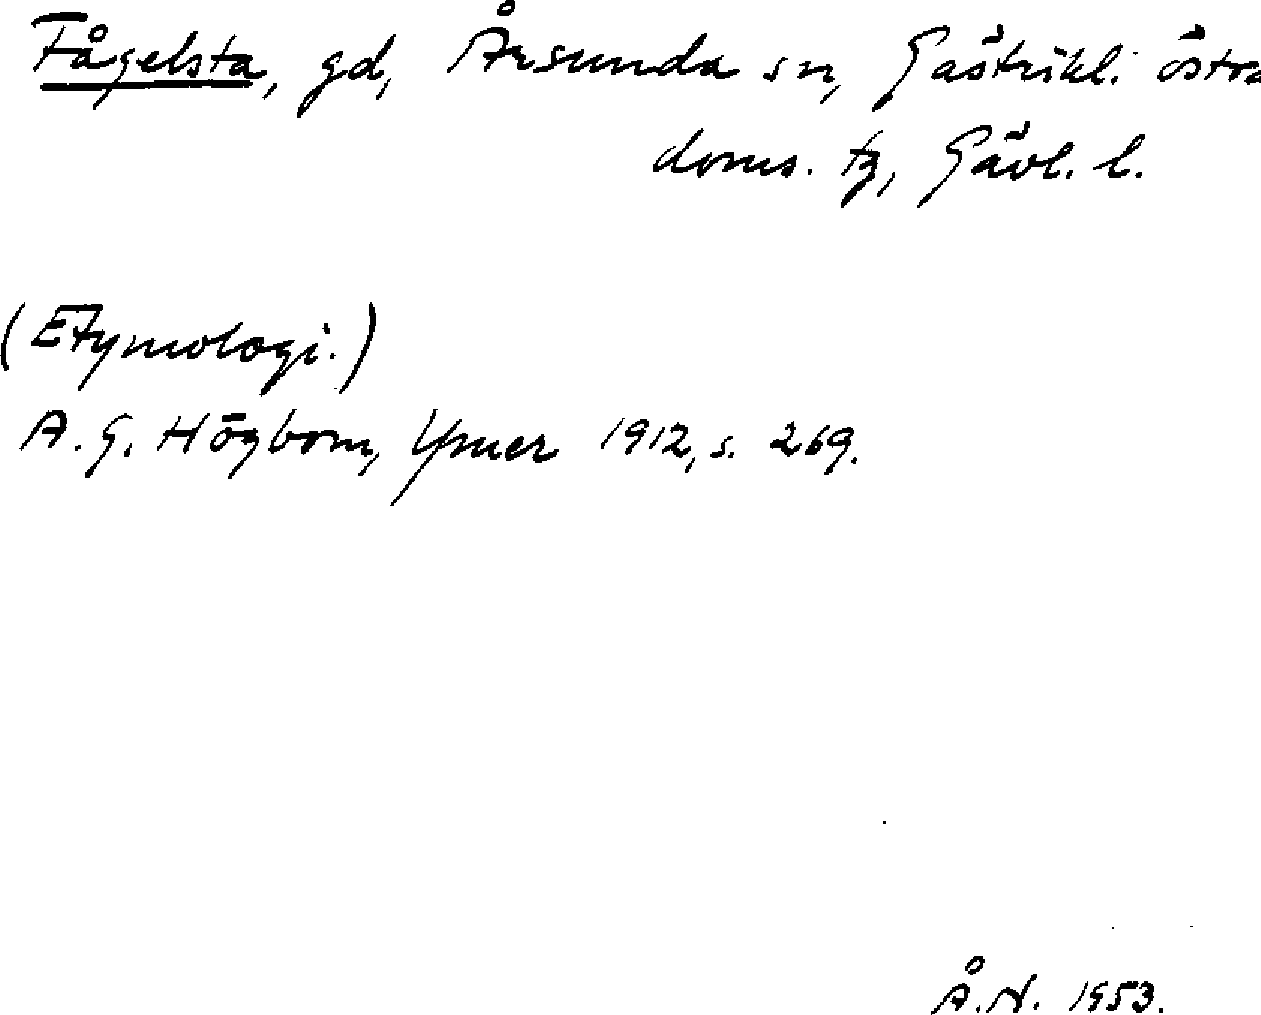 Fågelsta, gd, Årsunda sn, Gästrikl. östra
doms. tg, Gävl. l.
(Etymologi.)
A. G. Högbom, Ymer 1912, s. 269.
Å. N. 1953.